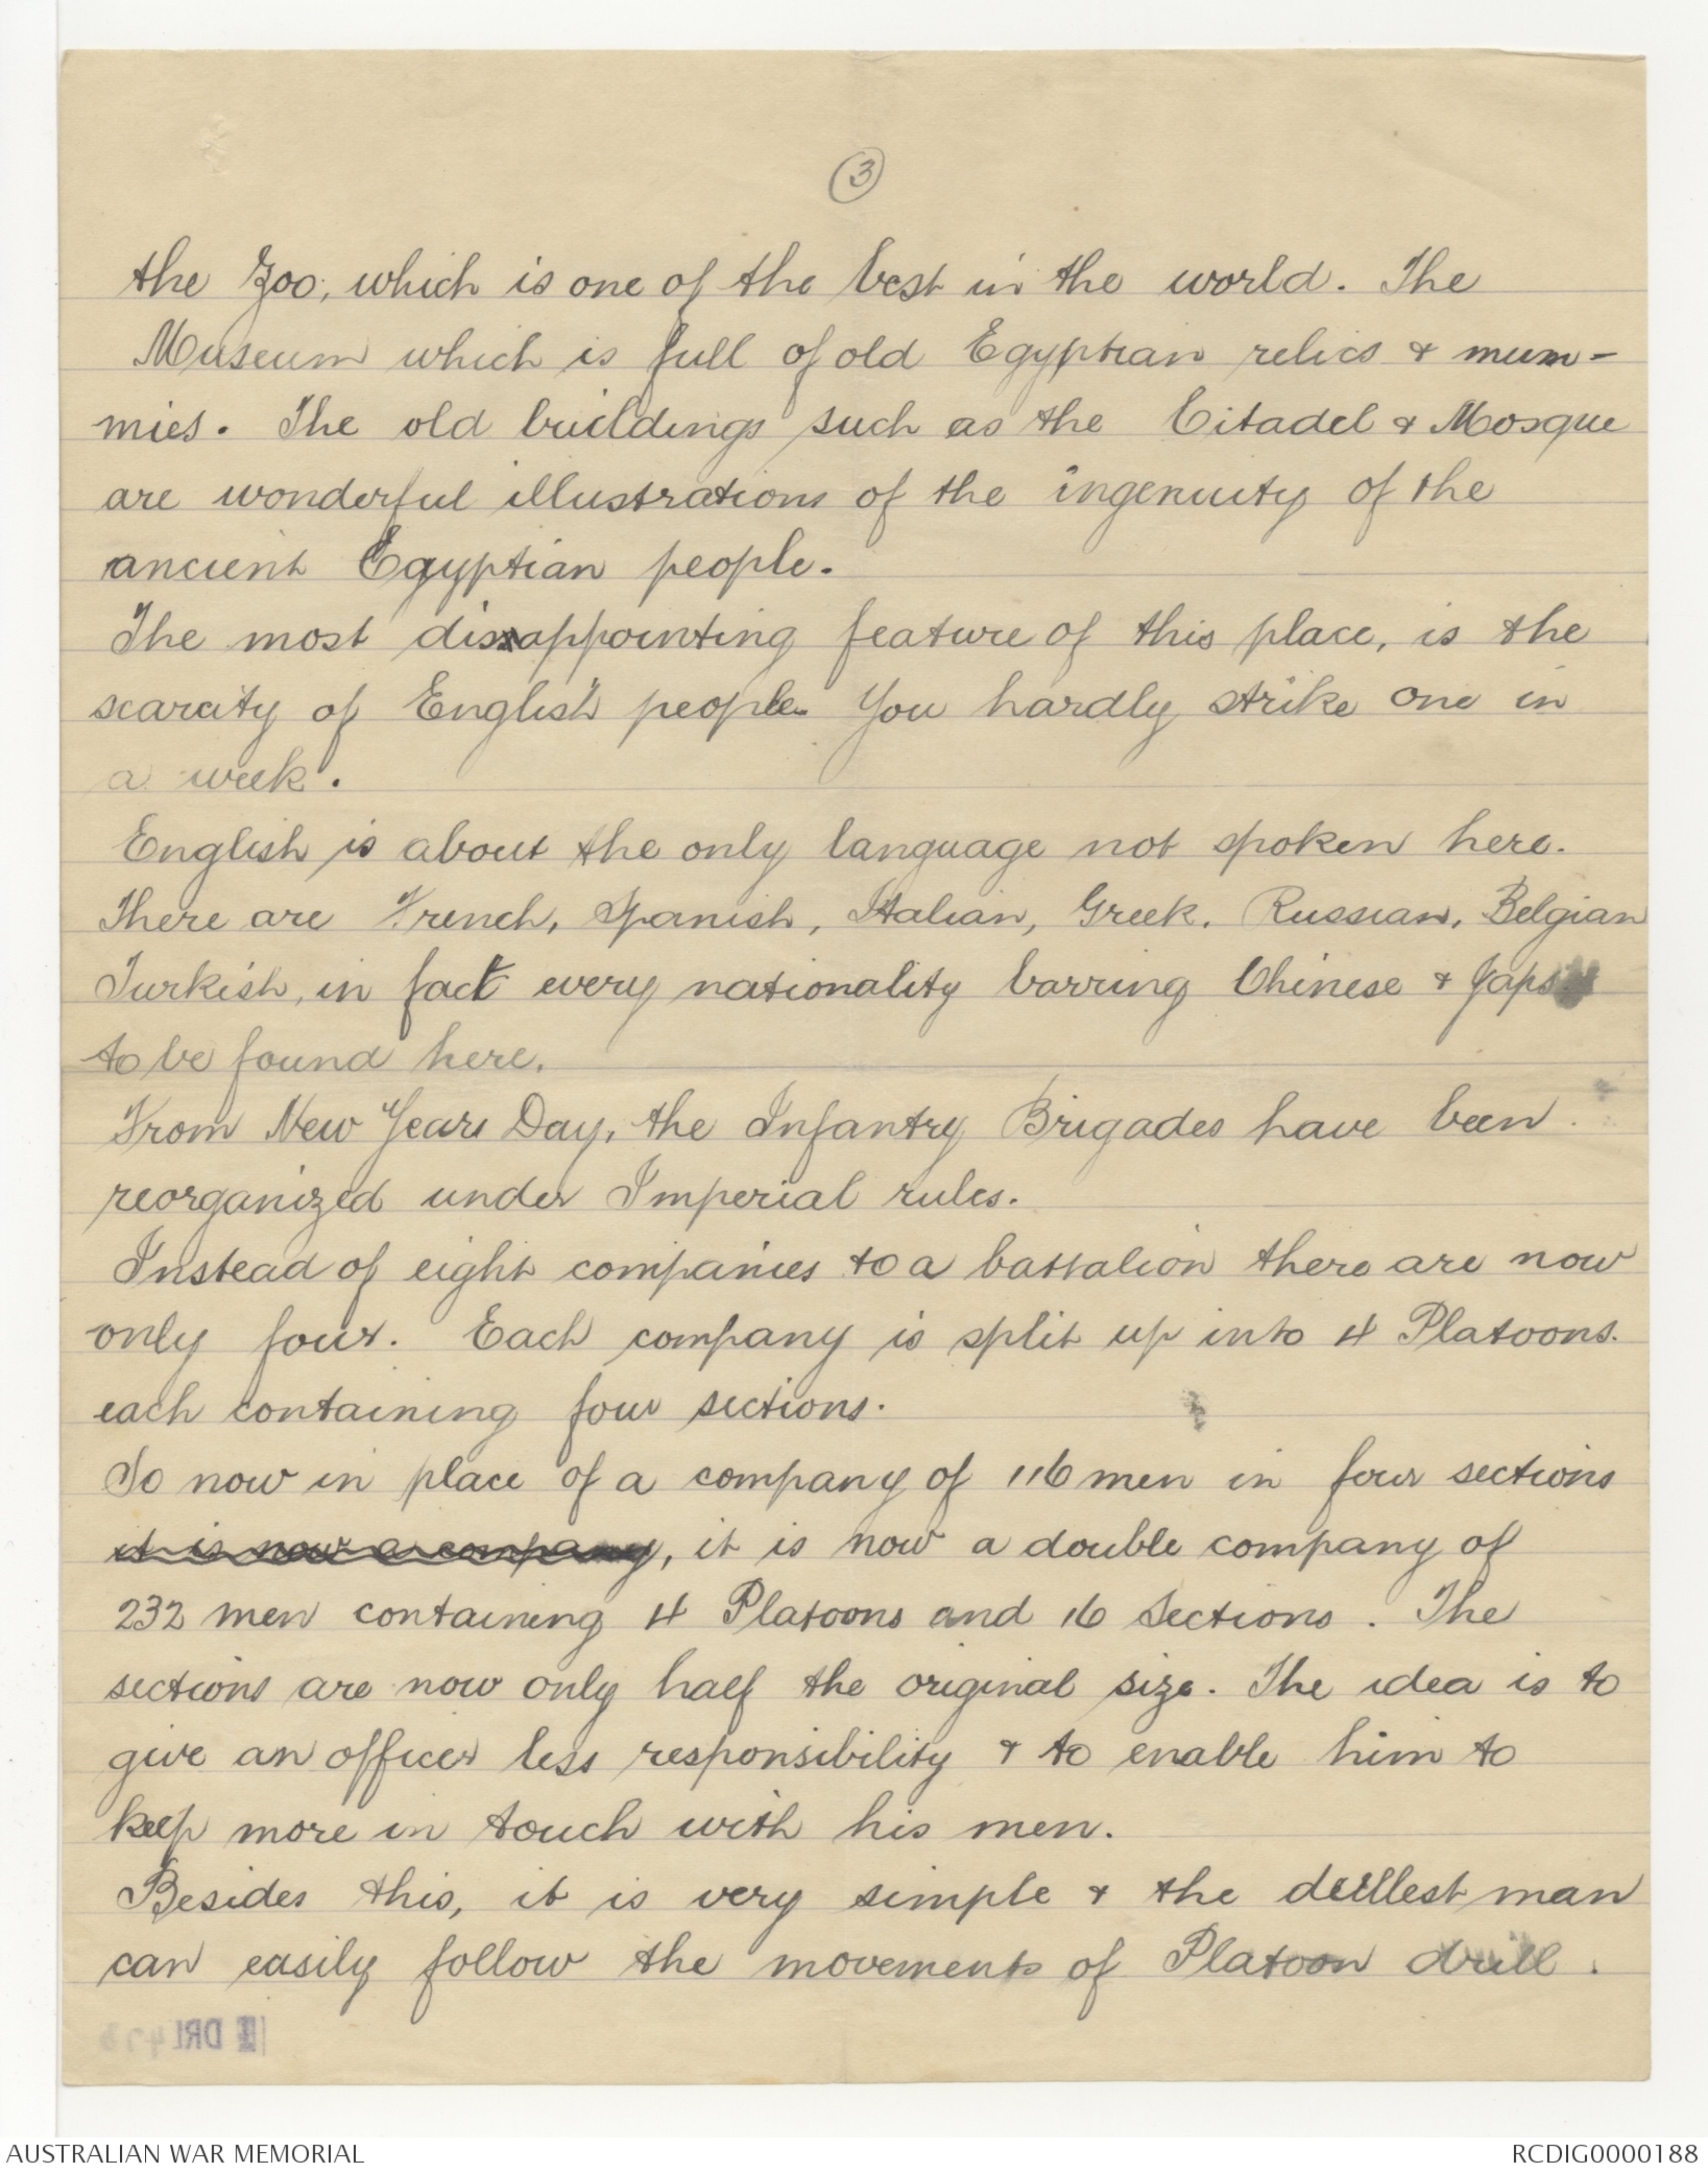 3
the Zoo, which is one of the best in the world. The
Museum which is full of old Egyptian relics & mum-
mies. The old buildings such as the Citadel & Mosque
are wonderful illustrations of the ingenuity of the
ancient Egyptian people.
The most disappointing feature of this place, is the
scarcity of English people. You hardly strike one in
a week.
English is about the only language not spoken here.
There are French, Spanish, Italian, Greek, Russian, Belgian
Turkish, in fact every nationality barring Chinese & Japs
to be found here.
From New Years Day, the Infantry Brigades have been
reorganized under Imperial rules.
Instead of eight companies to a battalion there are now
only four. Each company is split up into 4 Platoons.
each containing four sections.
So now in place of a company of 116 men in four sections
it is now a company, it is now a double company of
232 men containing 4 Platoons and 16 Sections. The
sections are now only half the original size. The idea is to
give an officer less responsibility & to enable him to
keep more in touch with his men.
Besides this, it is very simple & the dullest man
can easily follow the movements of Platoon drill.
DRL
AUSTRALIAN WAR MEMORIAL
RCDIG0000188